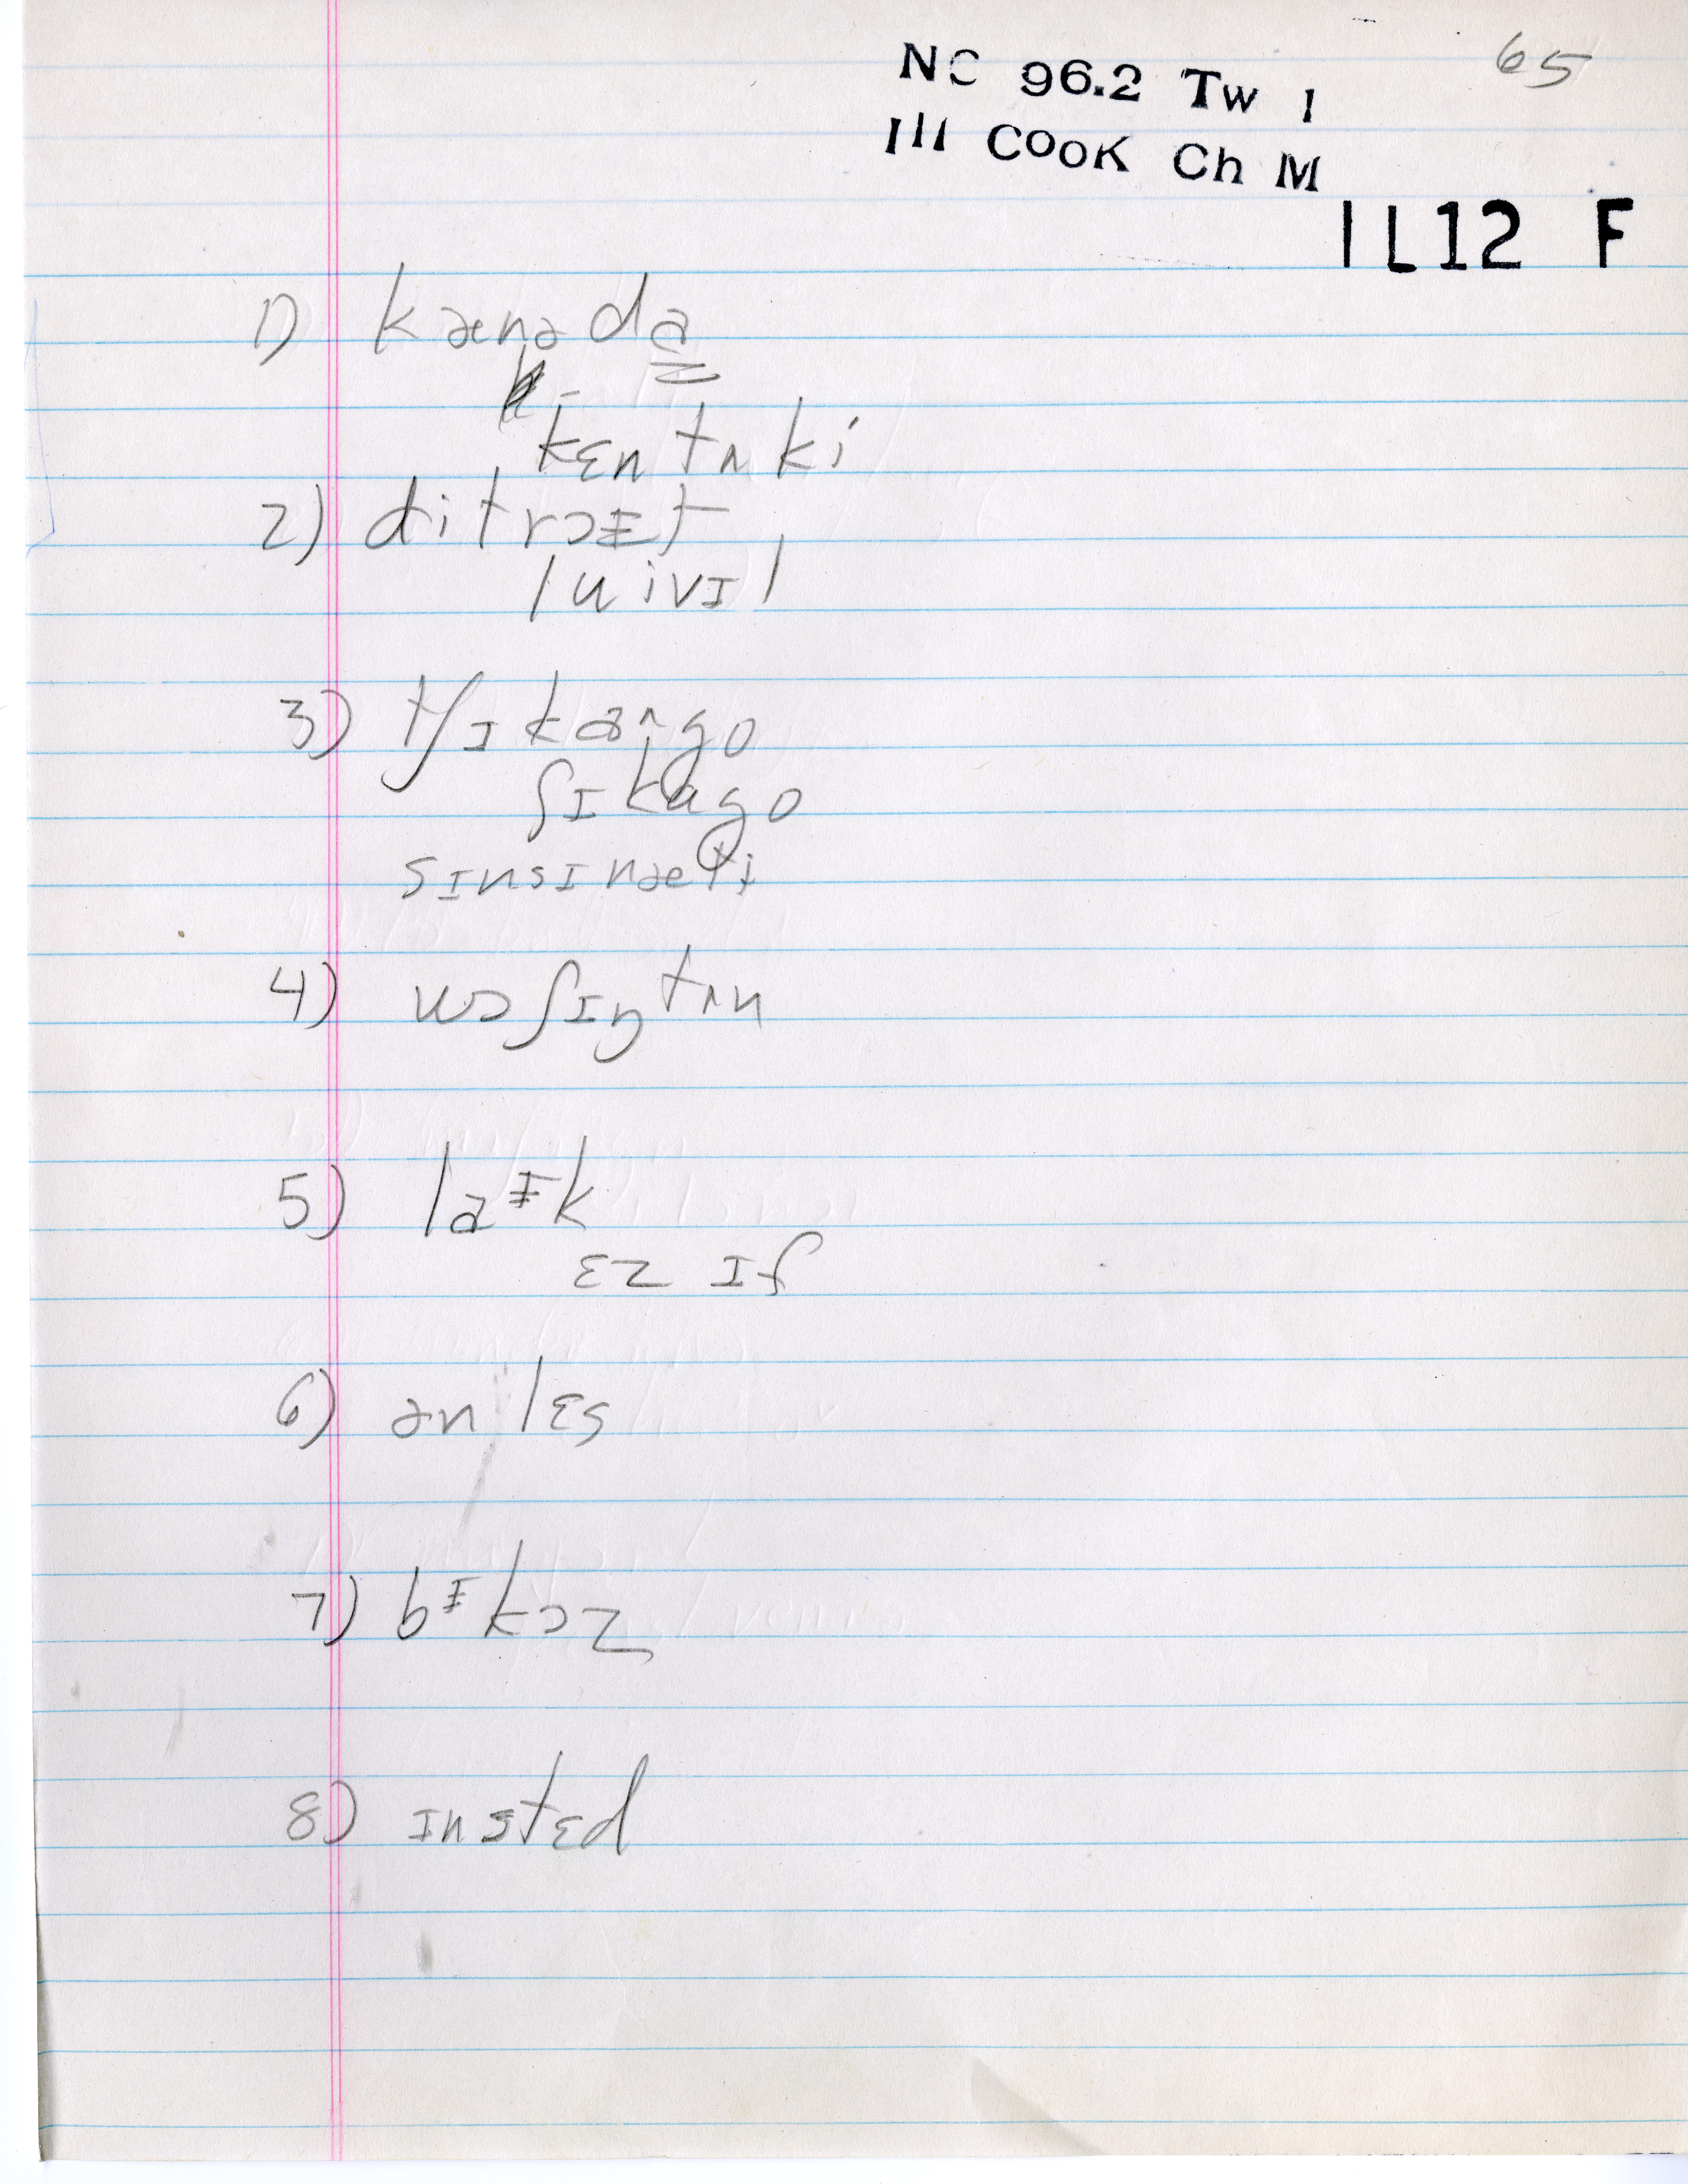 65
NC 96.2 Tw 1
Ill COOK Ch M
IL12 F
1) kænədə
kɛntʌki
2) ditrɔɪt
luivɪl
3) tʃɪkaʌgo
ʃɪkɑgo
sɪnsɪnæti
4) wɔʃɪŋtʌn
5) laɪk
ɛz ɪf
6) ənlɛs
7) bɪkɔz
8) ɪnstɛd